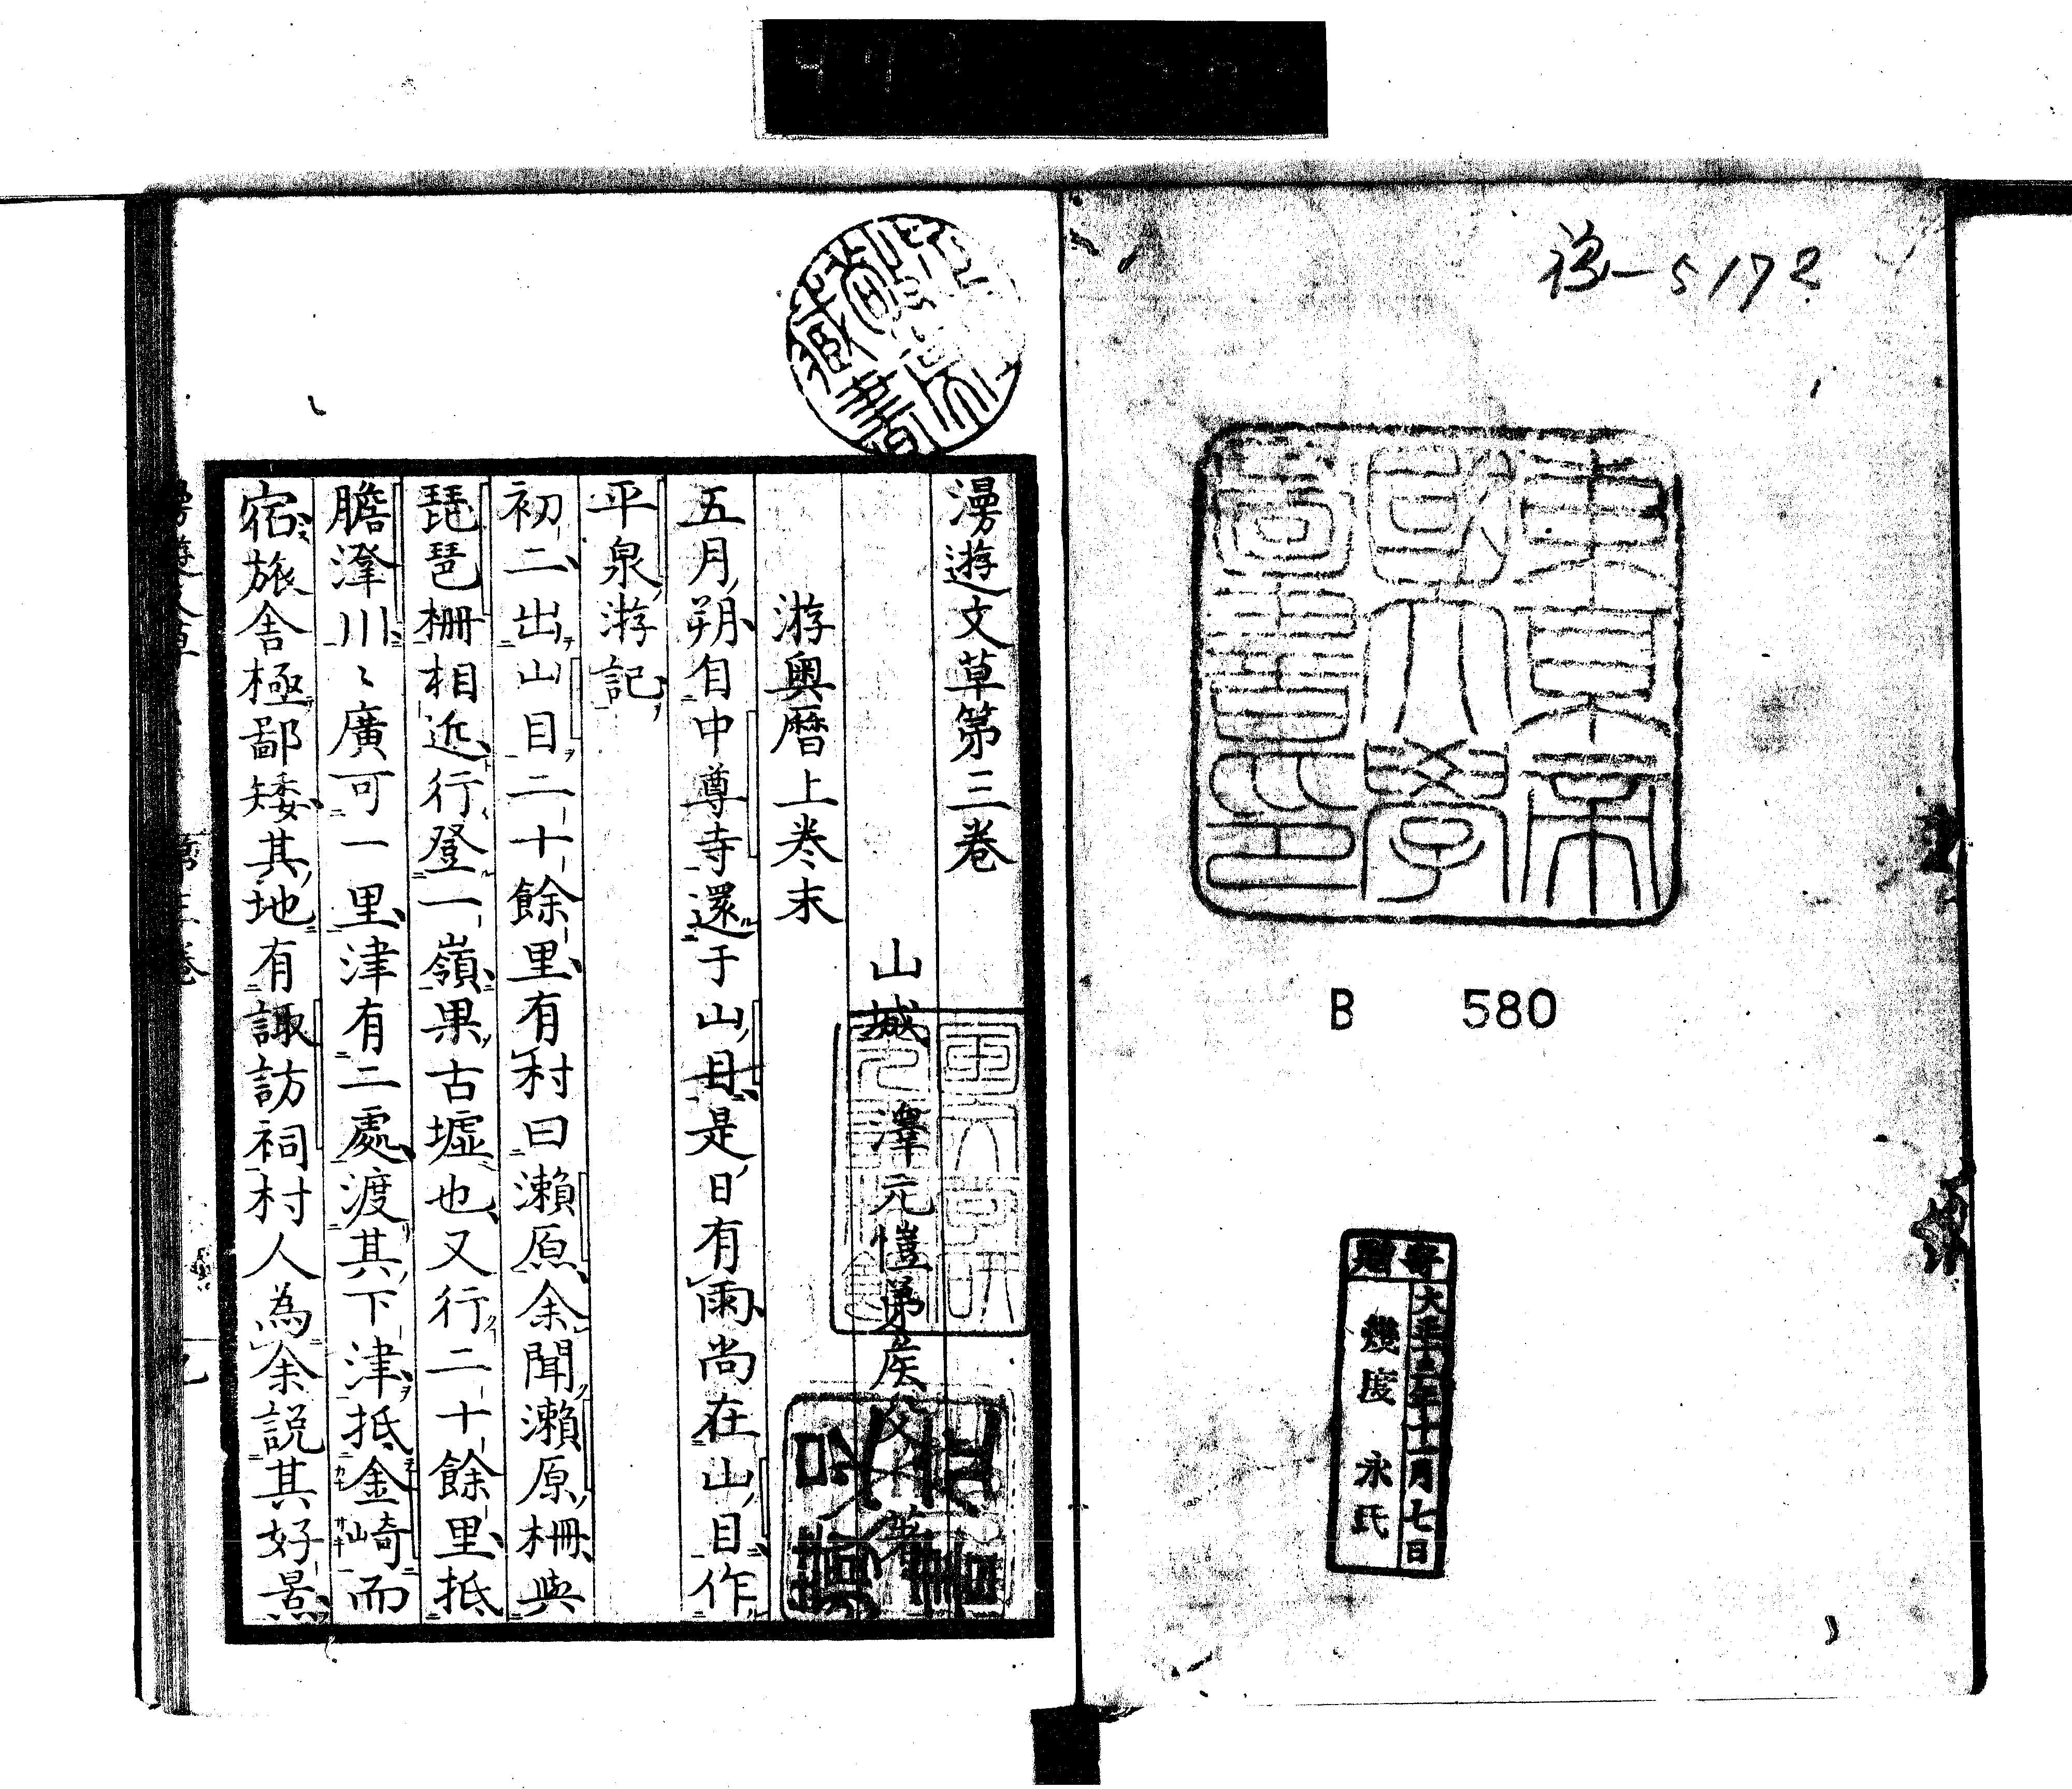 豫-5172
東京帝
國大學
圖書印
B 580
寄贈
大正十五年十一月七日
幾度永氏
漫遊文草第三卷
山城 澤元愷弟侯父 著
游奥暦上巻末
五月朔自中尊寺還于山目是日有雨尚在山目作
平泉游記
初二出山目二十餘里有村曰瀬原余聞瀬原柵與
琵琶柵相近行登一嶺果古墟也又行二十餘里抵
膽澤川々廣可一里津有二處渡其下津抵金崎而
宿旅舎極鄙矮其地有諏訪祠村人為余説其好景